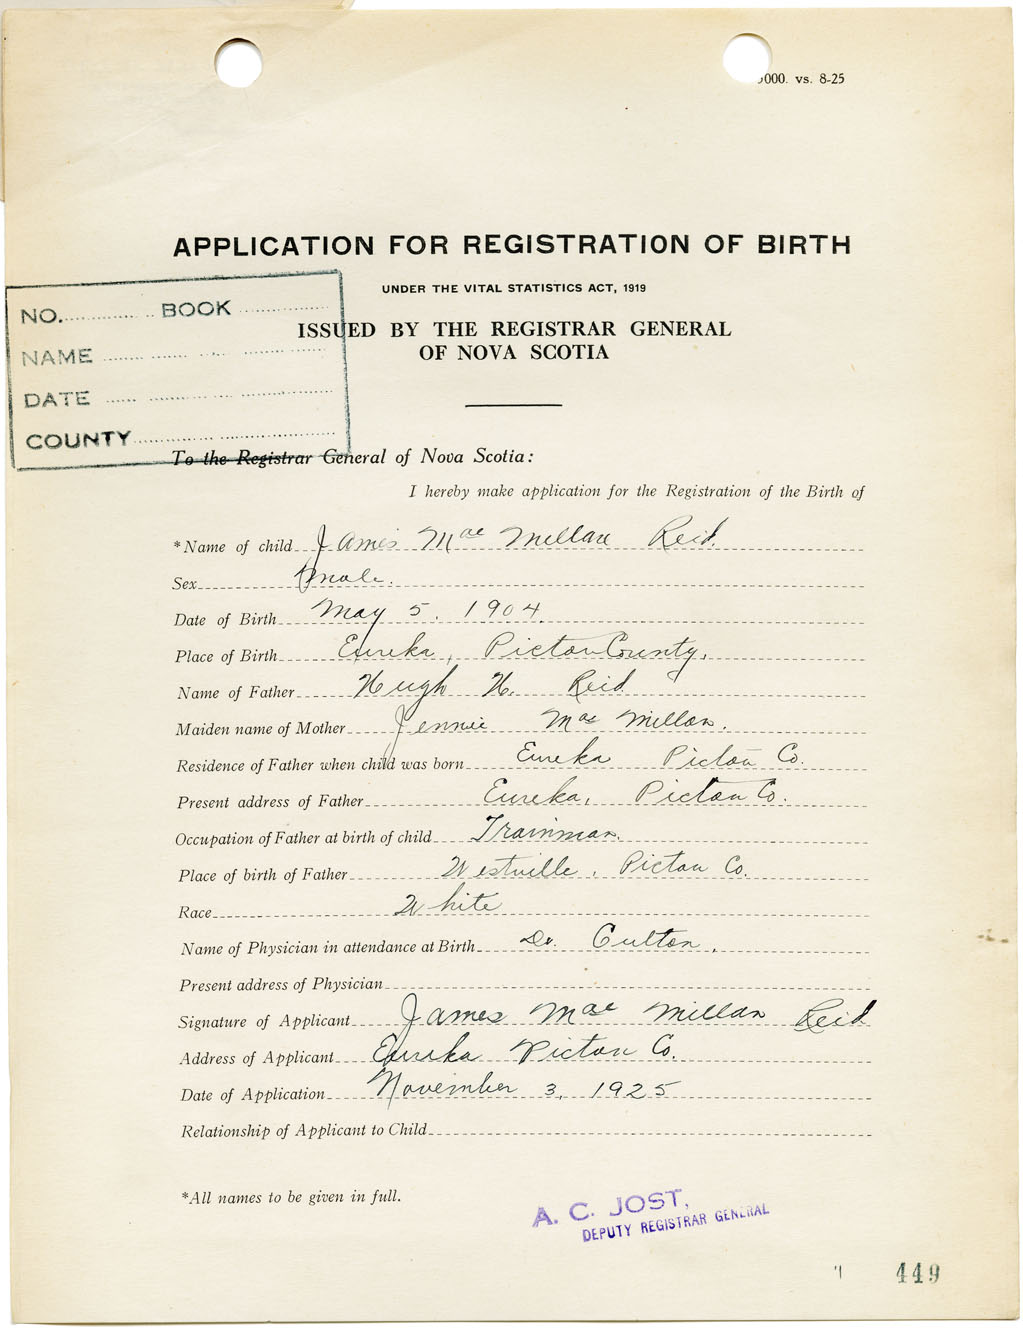 000. vs. 8-25
APPLICATION FOR REGISTRATION OF BIRTH
UNDER THE VITAL STATISTICS ACT, 1919
ISSUED BY THE REGISTRAR GENERAL
OF NOVA SCOTIA
NO. BOOK
NAME
DATE
COUNTY
To the Registrar General of Nova Scotia:
I hereby make application for the Registration of the Birth of
*Name of child James Mac Millan Reid.
Sex male.
Date of Birth May 5, 1904.
Place of Birth Eureka, Pictou County,
Name of Father Hugh H. Reid
Maiden name of Mother Jennie Mac Millan.
Residence of Father when child was born Eureka Pictou Co.
Present address of Father Eureka, Pictou Co.
Occupation of Father at birth of child Trainman.
Place of birth of Father Westville, Pictou Co.
Race White
Name of Physician in attendance at Birth Dr. Culton,
Present address of Physician
Signature of Applicant James Mac Millan Reid
Address of Applicant Eureka Pictou Co.
Date of Application November 3, 1925
Relationship of Applicant to Child
*All names to be given in full.
A. C. JOST,
DEPUTY REGISTRAR GENERAL
449